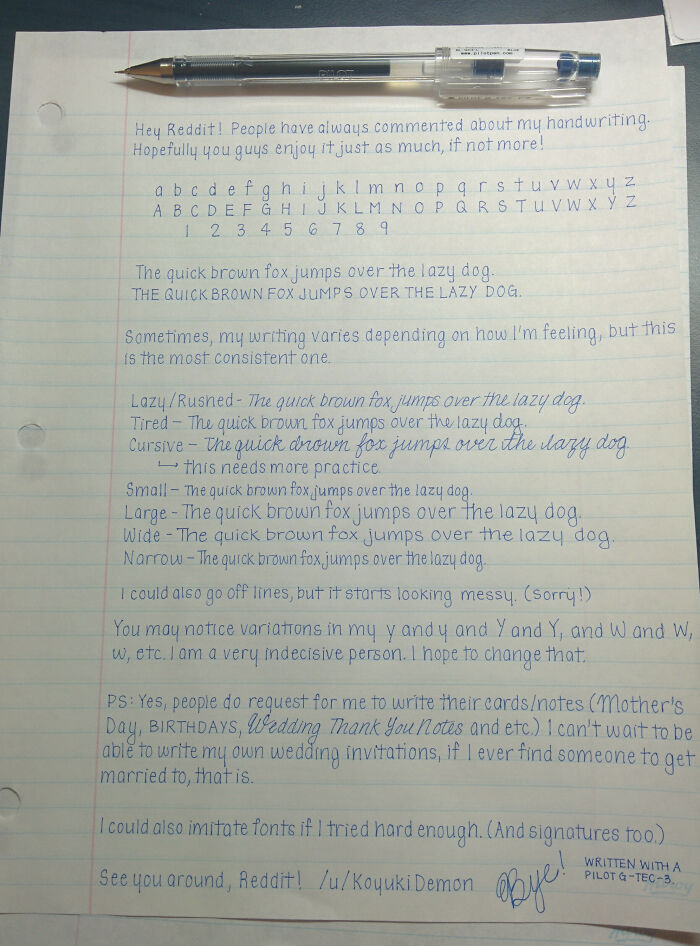 www.pilotpen.com
PILOT
Hey Reddit! People have always commented about my handwriting.
Hopefully you guys enjoy it just as much, if not more!
a b c d e f g h i j k l m n o p q r s t u v w x y z
A B C D E F G H I J K L M N O P Q R S T U V W X Y Z
1 2 3 4 5 6 7 8 9
The quick brown fox jumps over the lazy dog.
THE QUICK BROWN FOX JUMPS OVER THE LAZY DOG.
Sometimes, my writing varies depending on how I'm feeling, but this
is the most consistent one.
Lazy/Rushed - The quick brown fox jumps over the lazy dog.
Tired - The quick brown fox jumps over the lazy dog.
Cursive - The quick brown fox jumps over the lazy dog.
↳ this needs more practice.
Small - The quick brown fox jumps over the lazy dog.
Large - The quick brown fox jumps over the lazy dog.
Wide - The quick brown fox jumps over the lazy dog.
Narrow - The quick brown fox jumps over the lazy dog.
I could also go off lines, but it starts looking messy. (sorry!)
You may notice variations in my y and y and Y and Y, and W and W,
w, etc. I am a very indecisive person. I hope to change that.
PS: Yes, people do request for me to write their cards/notes (Mother's
Day, BIRTHDAYS, Wedding Thank You Notes and etc.) I can't wait to be
able to write my own wedding invitations, if I ever find someone to get
married to, that is.
I could also imitate fonts if I tried hard enough. (And signatures too.)
See you around, Reddit! /u/KoyukiDemon
Bye!
WRITTEN WITH A
PILOT G-TEC-3.